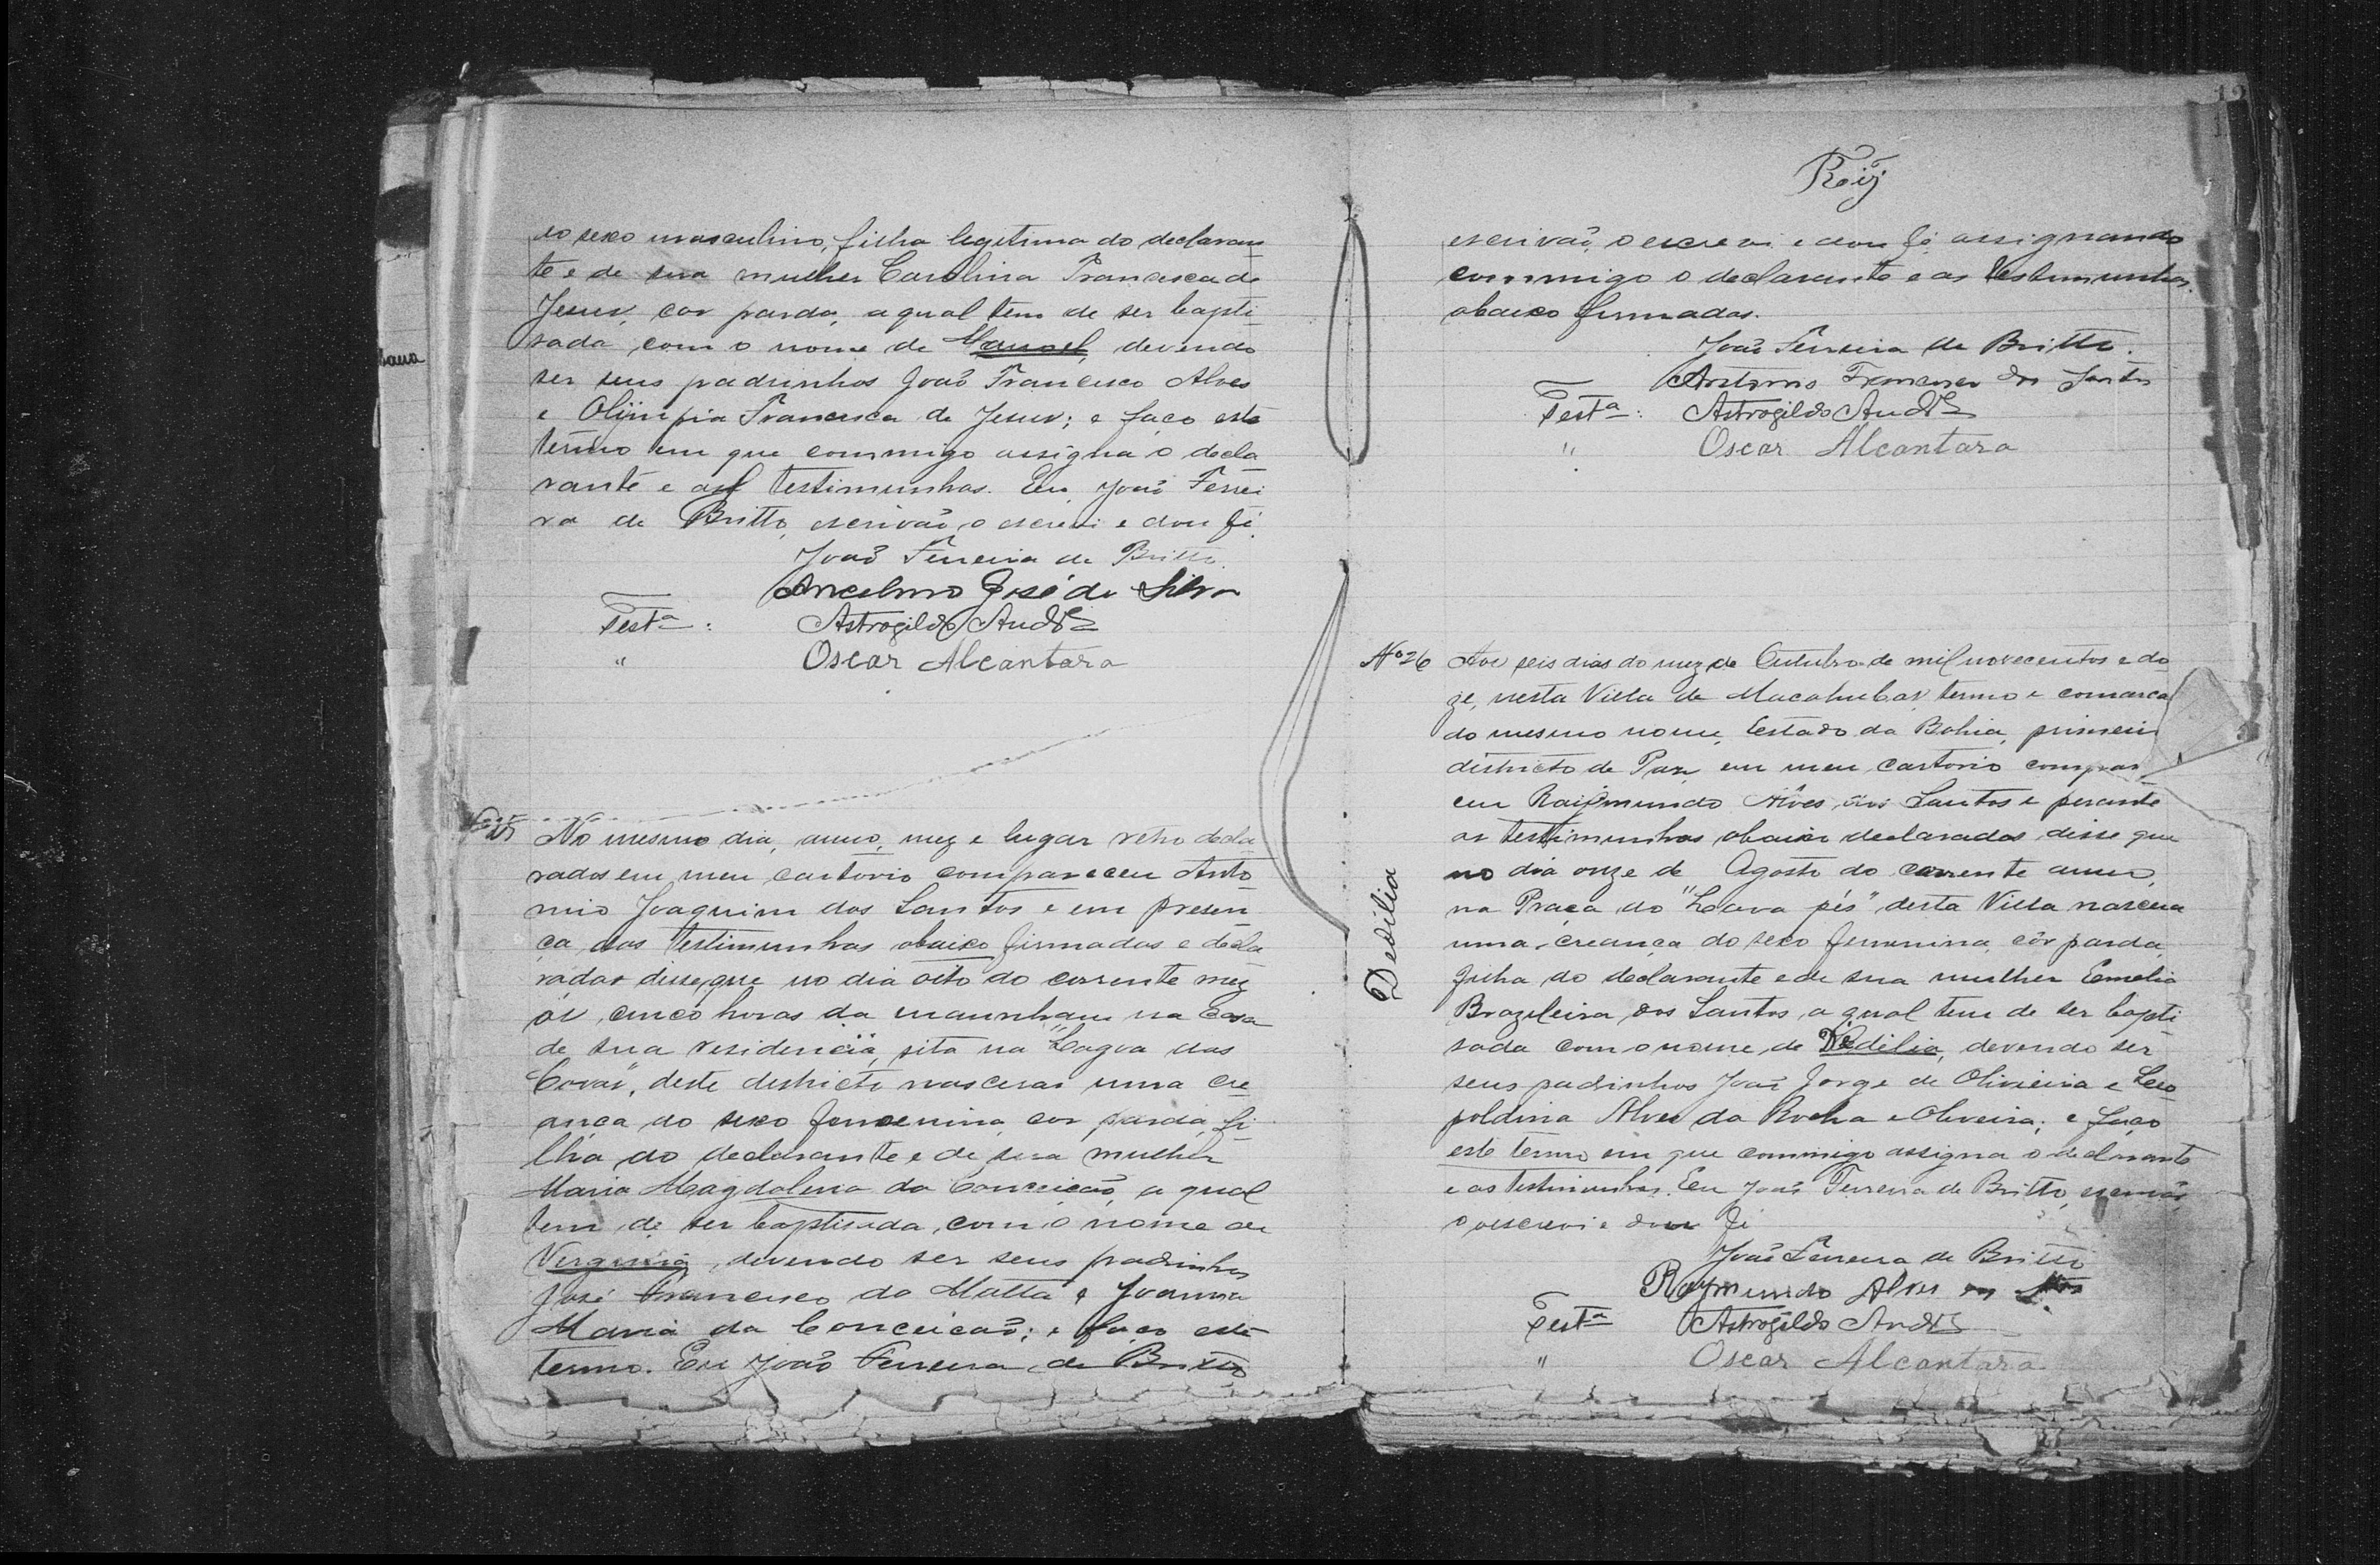 do sexo masculino, filha legitima do declaran
te e de sua mulher Carolina Francisca de
Jesus, cor parda, a qual tem de ser bapti
sada com o nome de Manoel, devendo
ser seus padrinhos João Francisco Alves
e Olimpia Francisca de Jesus; e faço este
termo em que commigo assigna o decla
rante e as testimunhas. Eu João Ferrei
ra de Britto, escrivão, o escrevi e dou fé.
João Ferreira de Britto.
Anselmo José da Silva
Testa: Astrogildo
" Oscar Alcantara
No 25
No mesmo dia, anno, mez e lugar retro decla
rados em meu cartorio compareceu Anto
nio Joaquim dos Santos e em presen
ça das testimunhas abaixo firmadas e decla
radas disse, que no dia oito do corrente mez
ás cinco horas da mannham na casa
de sua residencia, sita na "Lagoa das
Covas", deste districto nascera uma cre
ança do sexo femenina, cor parda, fi
lha do declarante e de sua mulher
Maria Magdalena da Conceição, a qual
tem de ser baptisada, com o nome de
Virginia, devendo ser seus padrinhos
José Francisco da Matta e Joanna
Maria da Conceicão; e faço este
termo. Eu João Ferreira de Britto
escrivão, o escrevi e dou fé, assignando
commigo o declarante e as testimunhas
abaixo firmadas.
João Ferreira de Britto.
Antonio Francisco dos Santos
Testa: Astrogildo
" Oscar Alcantara
No 26
Aos seis dias do mez de Outubro de mil novecentos e do
ze, nesta Villa de Macahubas, termo e comarca
do mesmo nome, Estado da Bahia, primeiro
districto de Paz em meu cartorio compar
ceu Raimundo Alves dos Santos e perante
as testimunhas abaixo declaradas disse que
no dia onze de Agosto do corrente anno,
na Praça do "Lava pés" desta Villa nascera
uma creança do sexo femenina, côr parda,
filha do declarante e de sua mulher Emelia
Brazileira dos Santos, a qual tem de ser bapti
sada com o nome de Dedilia, devendo ser
seus padrinhos João Jorge de Oliveira e Leo
poldina Alves da Rocha e Oliveira; e faço
este termo em que commigo assigna o declarante
e as testimunhas. Eu João Ferreira de Britto, escrivão
o escrevi e dou fé
João Ferreira de Britto
Raymundo Alves dos
Testa Astrogildo
" Oscar Alcantara
Dedilia